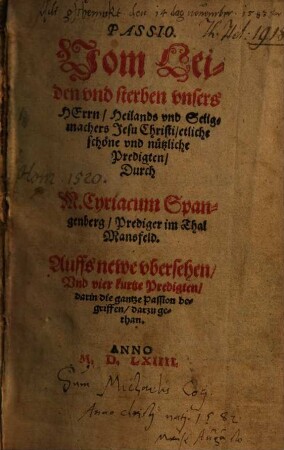 Th. Pol: 1918
PASSIO.
Vom Lei-
den vnd sterben vnsers
HErrn / Heilands vnd Selig-
machers Jesu Christi / etliche
schöne vnd nützliche
Predigten /
Durch
M. Cyriacum Span-
genberg / Prediger im Thal
Mansfeld.
Auffs newe vbersehen /
Vnd vier kurtze Predigten /
darin die gantze Passion be-
griffen / darzu ge-
than.
ANNO
M. D. LXIIII.
Sum Michaelis
Anno Christi 1582